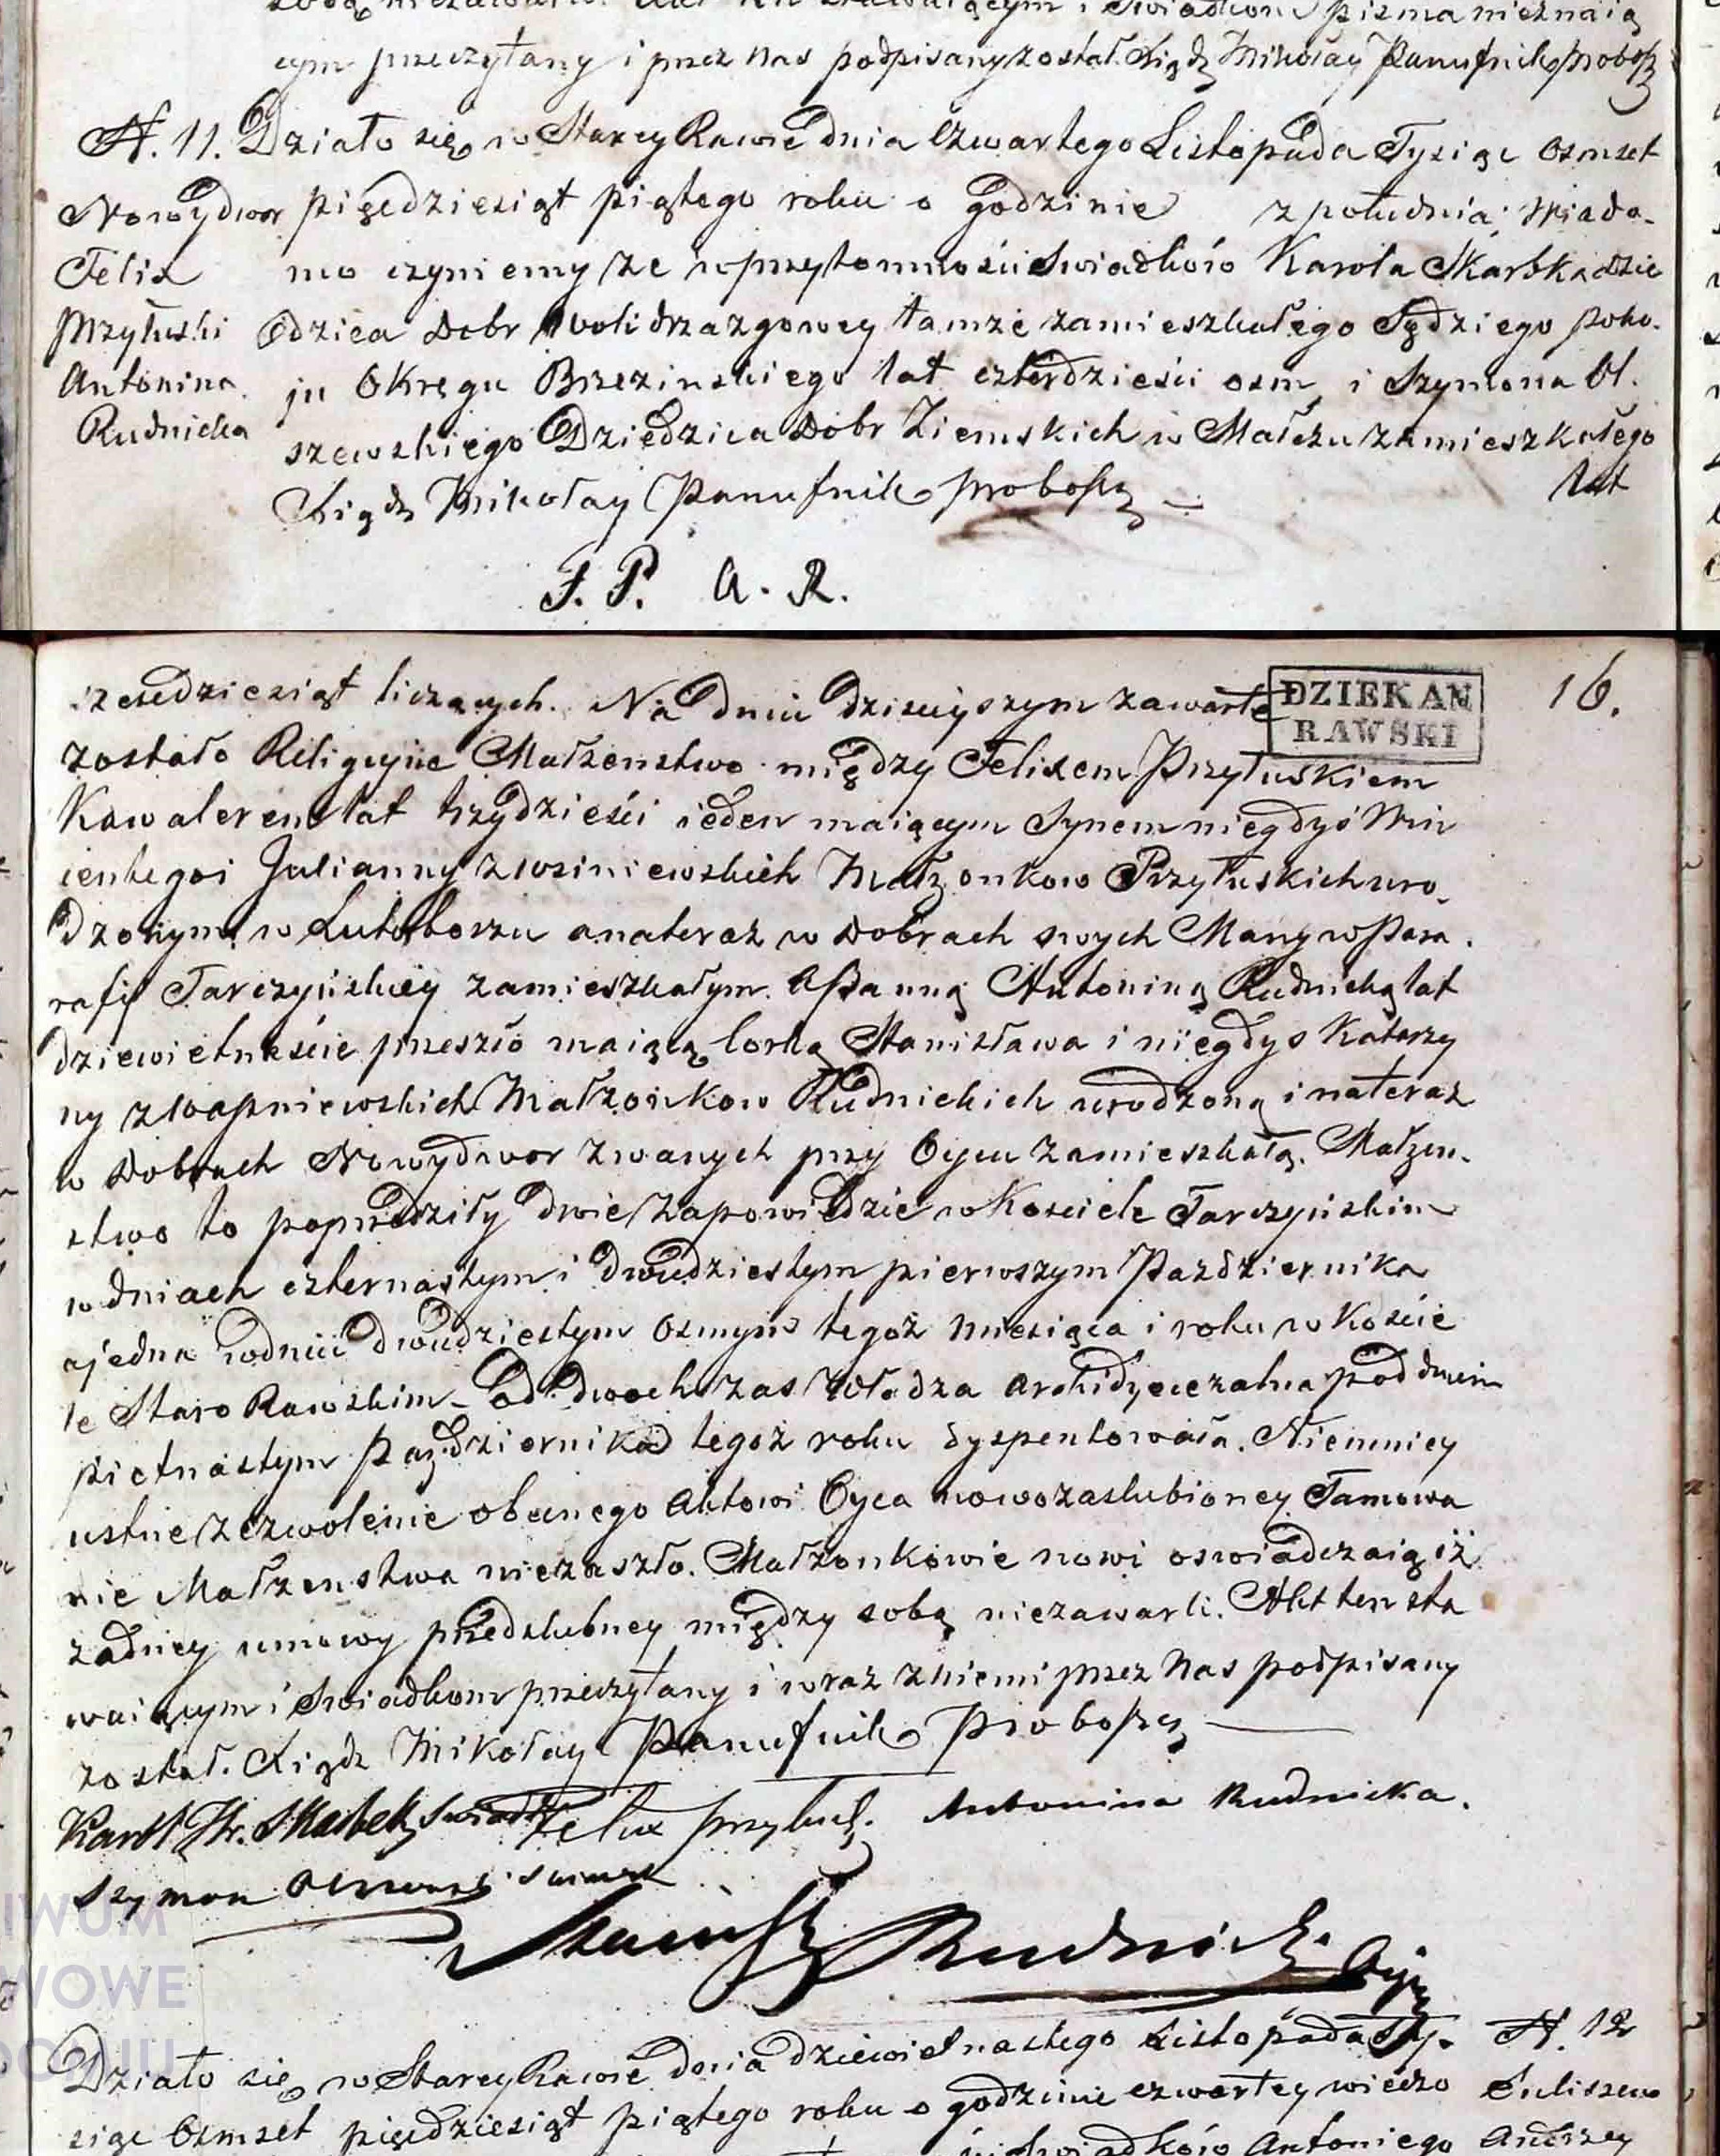 cym przeczytany i przez Nas podpisany został. Xiądz Mikołay Panufnik Probosz
N. 11. Działo się w Starey Rawie dnia Czwartego Listopada Tysiąc Osmset
Nowydwor
Felix
Przyłuski
Antonina
Rudnicka
pięcdziesiąt piątego roku o godzinie z południa; Wiado-
mo czyniemy że w przytomności Swiadków Karola Skarbka dzie
dzica Dobr Woli drzazgowey tamże zamieszkałego Sędziego poko-
ju Okręgu Brzezinskiego lat czterdzieści osm, i Szymona Ol.
szewskiego Dziedzica Dobr Ziemskich w Małczu zamieszkałego
lat
Xiądz Mikołay Panufnik Probosz
F. P. A. R.
DZIEKAN
RAWSKI
16.
szescdziesiąt liczących. Na dniu dzisieyszym zawarte
zostało Religiyne Małzenstwo między Felixem Przyłuskiem
Kawalerem lat trzydzieści ieden maiącym Synem niegdyś Win
centego i Julianny z Wsiniewskich Małżonkow Przyłuskich uro-
dzonym w Lutoborzu a na teraz w Dobrach swych Many w Para.
rafij Tarczyńskiey zamieszkałym. A Panną Antoniną Rudnicką lat
dziewietnaście przeszło maiącą Corką Stanisława i niegdys Katarzy
ny z Wapniewskich Małżonkow Rudnickich urodzoną i na teraz
w Dobrach Nowydwor zwanych przy Oycu zamieszkałą. Małzen-
stwo to poprzedziły dwie zapowiedzie w Kosciele Tarczyńskim
w dniach czternastym i dwudziestym pierwszym Pazdziernika
a jedna w dniu dwudziestym Osmym tegoż Miesiąca i roku w Koście
le Staro Rawskim - Od dwoch zas Władza Archidyecezalna pod dniem
pietnastym Pazdziernika tegoż roku dyspensowała. Niemniey
ustne zezwolenie obecnego Aktowi Oyca nowozaslubioney Tamowa
nie Małzenstwa niezaszło. Małzonkowie nowi oswiadczaią iż
zadney umowy przedslubney między sobą niezawarli. Akt ten sta
waiącym i Swiadkom przeczytany i wraz z niemi przez Nas podpisany
został. Xiądz Mikołay Panufnik Probosz
Karol Hr. Skarbek Swiadek Felix Przyłusk. Antonina Rudnicka.
Szymon
Stanisł Rudnicki Oyciec
Działo się w Starey Rawie dnia dziewietnastego Listopada Ty- N. 12
siąc Osmset pięcdziesiąt piątego roku o godzinie czwartey wieczo
Swiadków Antoniego
Andrzey